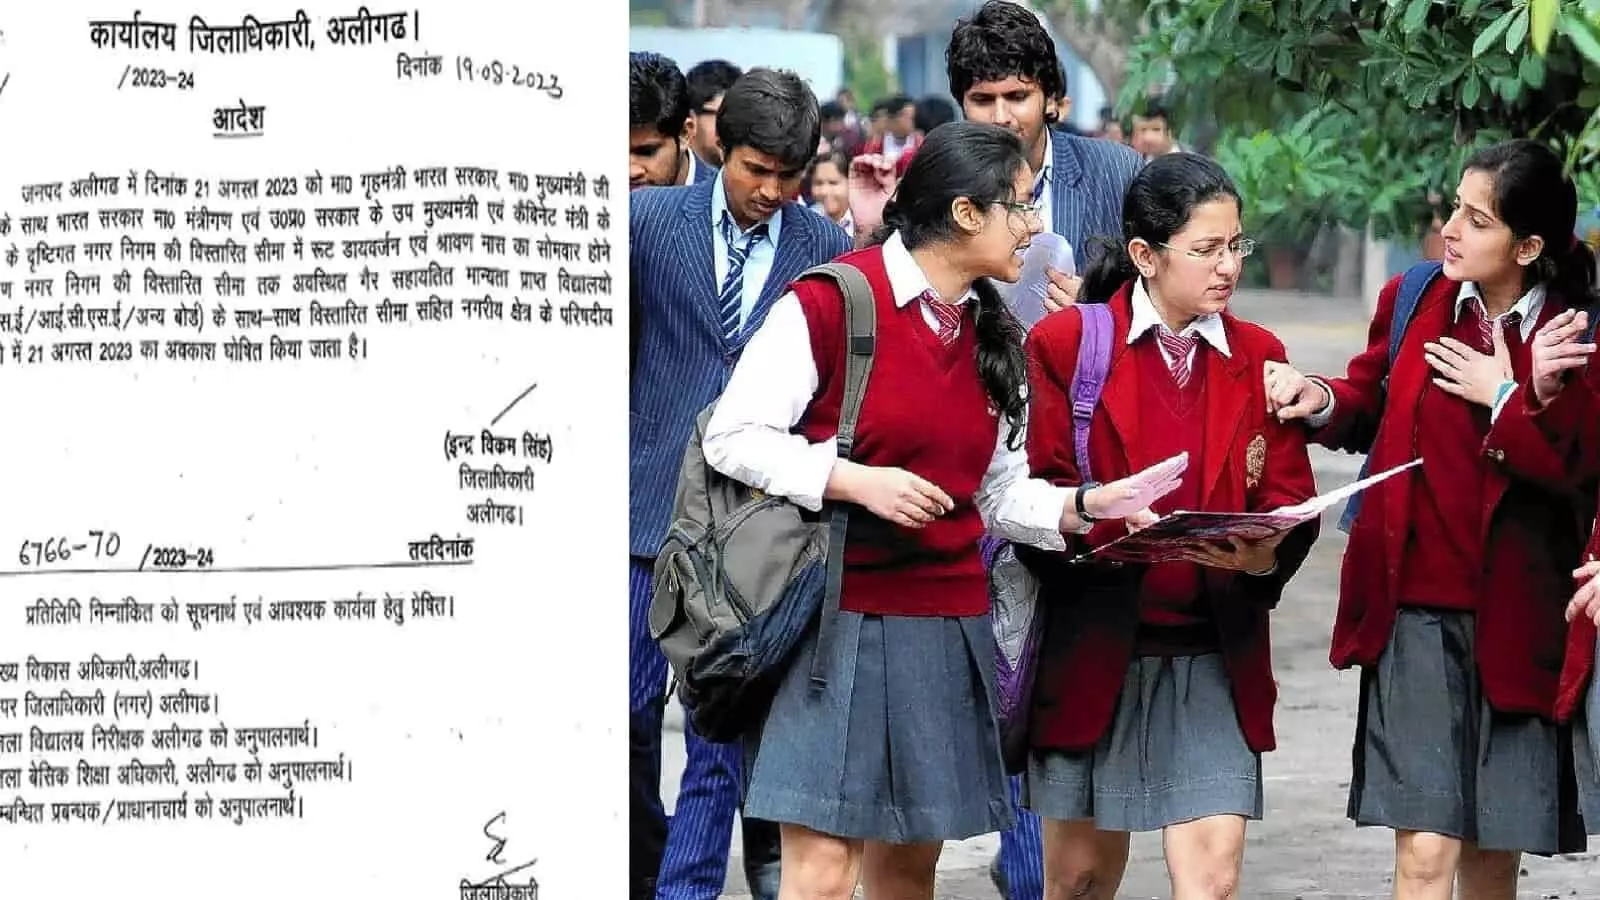 कार्यालय जिलाधिकारी, अलीगढ।
/2023-24
दिनांक 19.08.2023
आदेश
जनपद अलीगढ में दिनांक 21 अगस्त 2023 को मा0 गृहमंत्री भारत सरकार, मा0 मुख्यमंत्री जी
के साथ भारत सरकार मा0 मंत्रीगण एवं उ0प्र0 सरकार के उप मुख्यमंत्री एवं कैबिनेट मंत्री के
के दृष्टिगत नगर निगम की विस्तारित सीमा में रूट डायवर्जन एवं श्रावण मास का सोमवार होने
ण नगर निगम की विस्तारित सीमा तक अवस्थित गैर सहायतित मान्यता प्राप्त विद्यालयो
स.ई/आई.सी.एस.ई/अन्य बोर्ड) के साथ-साथ विस्तारित सीमा सहित नगरीय क्षेत्र के परिषदीय
में 21 अगस्त 2023 का अवकाश घोषित किया जाता है।
(इन्द्र विकम सिंह)
जिलाधिकारी
अलीगढ।
6766-70 /2023-24 तददिनांक
प्रतिलिपि निम्नांकित को सूचनार्थ एवं आवश्यक कार्यवा हेतु प्रेषित।
ख्य विकास अधिकारी,अलीगढ।
पर जिलाधिकारी (नगर) अलीगढ।
ला विद्यालय निरीक्षक अलीगढ को अनुपालनार्थ।
ला बेसिक शिक्षा अधिकारी, अलीगढ को अनुपालनार्थ।
म्बन्धित प्रबन्धक/प्राधानाचार्य को अनुपालनार्थ।
जिलाधिकारी